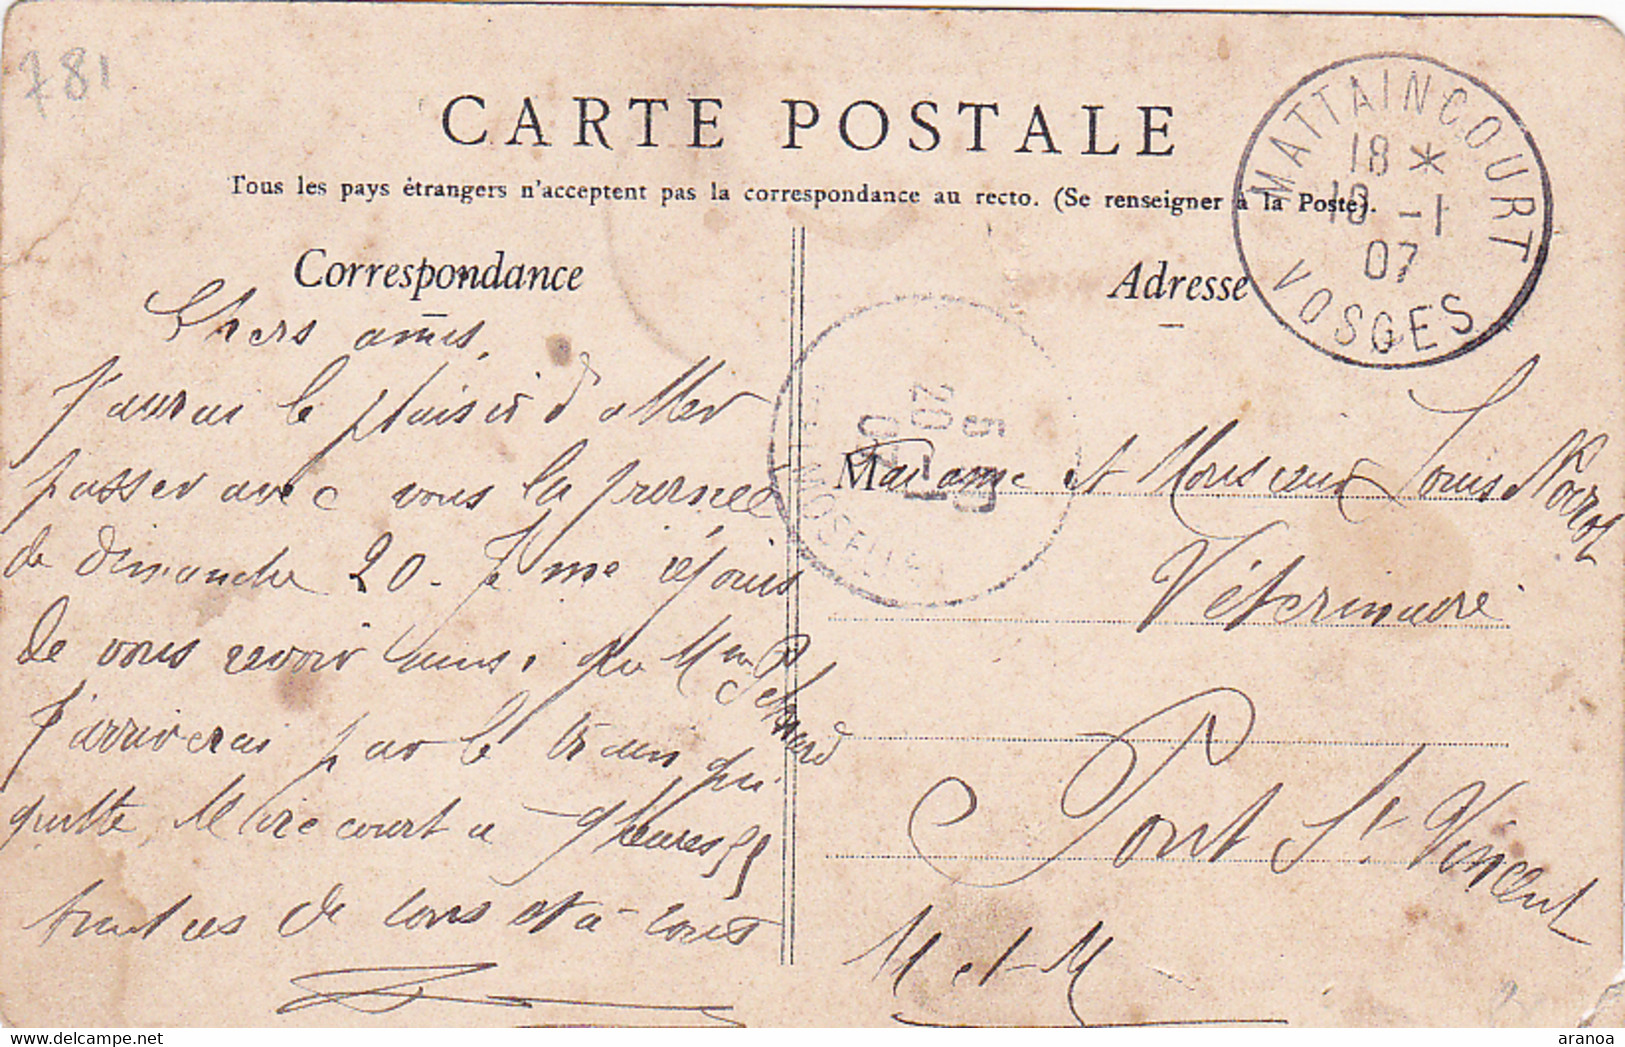 781
CARTE POSTALE
Tous les pays étrangers n'acceptent pas la correspondance au recto. (Se renseigner à la Poste).
MATTAINCOURT
18 *
-1
07
VOSGES
Correspondance
Chers amis,
J'aurai le plaisir d'aller
passer avec vous la journée
de dimanche 20. Je me réjouis
de vous revoir ainsi que Mme
J'arriverai par le train qui
quitte Mirecourt a 9 heures 55
de tous et à tous
Adresse
5
20 -1
07
MOSELLE
Madame et Monsieur Louis
Vétérinaire
Pont St Vincent
M et M
aranoa